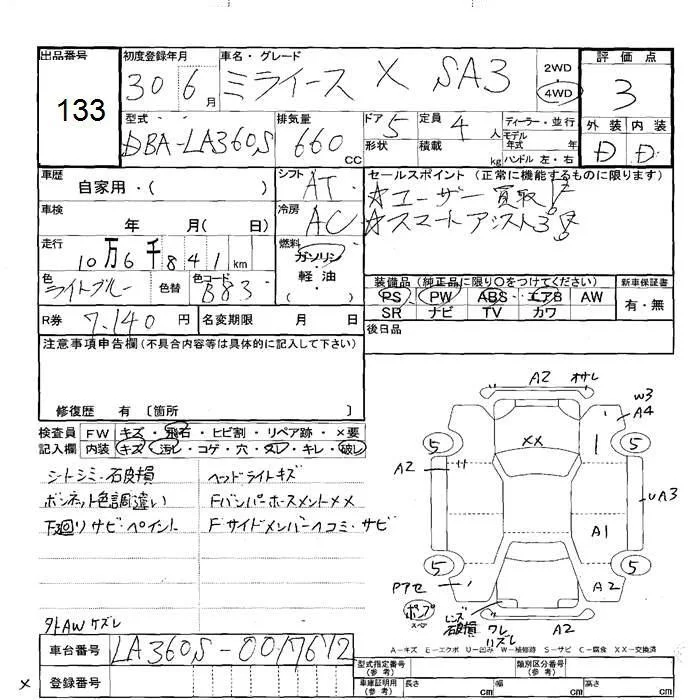 出品番号
133
初度登録年月
30 6月
車名・グレード
ミライース X SA3
2WD
4WD
評価点
3
外装 内装
D D
型式
DBA-LA360S
排気量
660 CC
ドア 5
形状
定員 4 人
積載 kg
ディーラー・並行
モデル
年式 年
ハンドル 左・右
車歴
自家用・( )
シフト
AT
車検
年 月( 日)
冷房
AC
走行
10万6千841km
燃料
ガソリン
軽・油
( )
色
ライトブルー
色替
色コード
B83
R券 7,140 円
名変期限 月 日
セールスポイント(正常に機能するものに限ります)
☆ユーザー買取!!
☆スマートアシスト3!!
装備品(純正品に限り○をつけてください)
PS PW ABS・エアB AW
SR ナビ TV カワ
新車保証書
有・無
後日品
注意事項申告欄(不具合内容等は具体的に記入して下さい)
修復歴 有〔箇所 〕
検査員 FW キズ・飛石・ヒビ割・リペア跡・×要
記入欄 内装 キズ・汚レ・コゲ・穴・スレ・キレ・破レ
シトシミ・石破損
ボンネット色調違い
下廻リサビ・ペイント
ヘッドライトキズ
Fバンパーホースメント××
Fサイドメンバーヘコミ・サビ
外AWケズレ
A2 オサレ
W3
A4
5 5
XX
A2
UA3
A1
5 5
Pアセ
A2
ポンプ
スペ
レンズ
石破損
ワレ
リズレ
A2
A-キズ E-エクボ U-凹み W-補修跡 S-サビ C-腐食 XX-交換済
車台番号 LA360S-0017612
登録番号
型式指定番号
(参考)
類別区分番号
(参考)
車庫証明用
(参考)
長さ cm
幅 cm
高さ cm
×